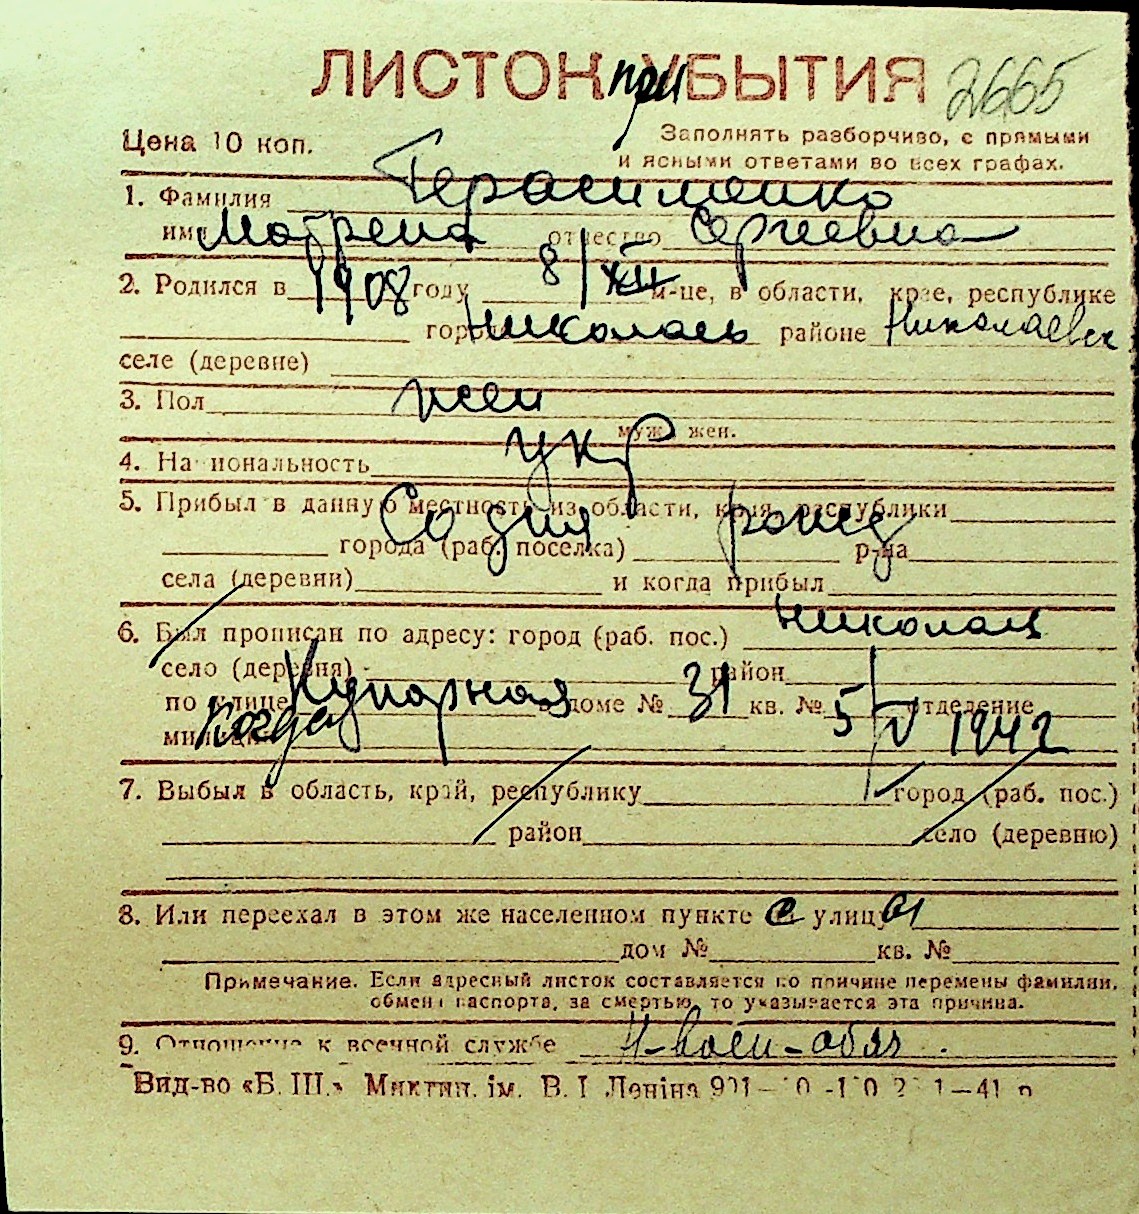 ЛИСТОК при УБЫТИЯ 2665
Цена 10 коп. Заполнять разборчиво, с прямыми
и ясными ответами во всех графах.
1. Фамилия Герасименко
имя Матрена отчество Сергеевна
2. Родился в 1908 году 8/XII м-це, в области, крае, республике
городе Николаев районе Николаевск
селе (деревне)
3. Пол жен
муж., жен.
4. Национальность укр
5. Прибыл в данную местность из области, края, республики
Со дня рожд
города (раб. поселка) р-на
села (деревни) и когда прибыл
6. Был прописан по адресу: город (раб. пос.) Николаев
село (деревня) район
по улице Купорная в доме № 31 кв. № отделение
милиции Когда 5/V 1942
7. Выбыл в область, край, республику город (раб. пос.)
район село (деревню)
8. Или переехал в этом же населенном пункте с улицы
дом № кв. №
Примечание. Если адресный листок составляется по причине перемены фамилии,
обмена паспорта, за смертью, то указывается эта причина.
9. Отношение к военной службе Н-воен-обяз.
Вид-во «Б. Ш.» Миктип. ім. В. І. Леніна